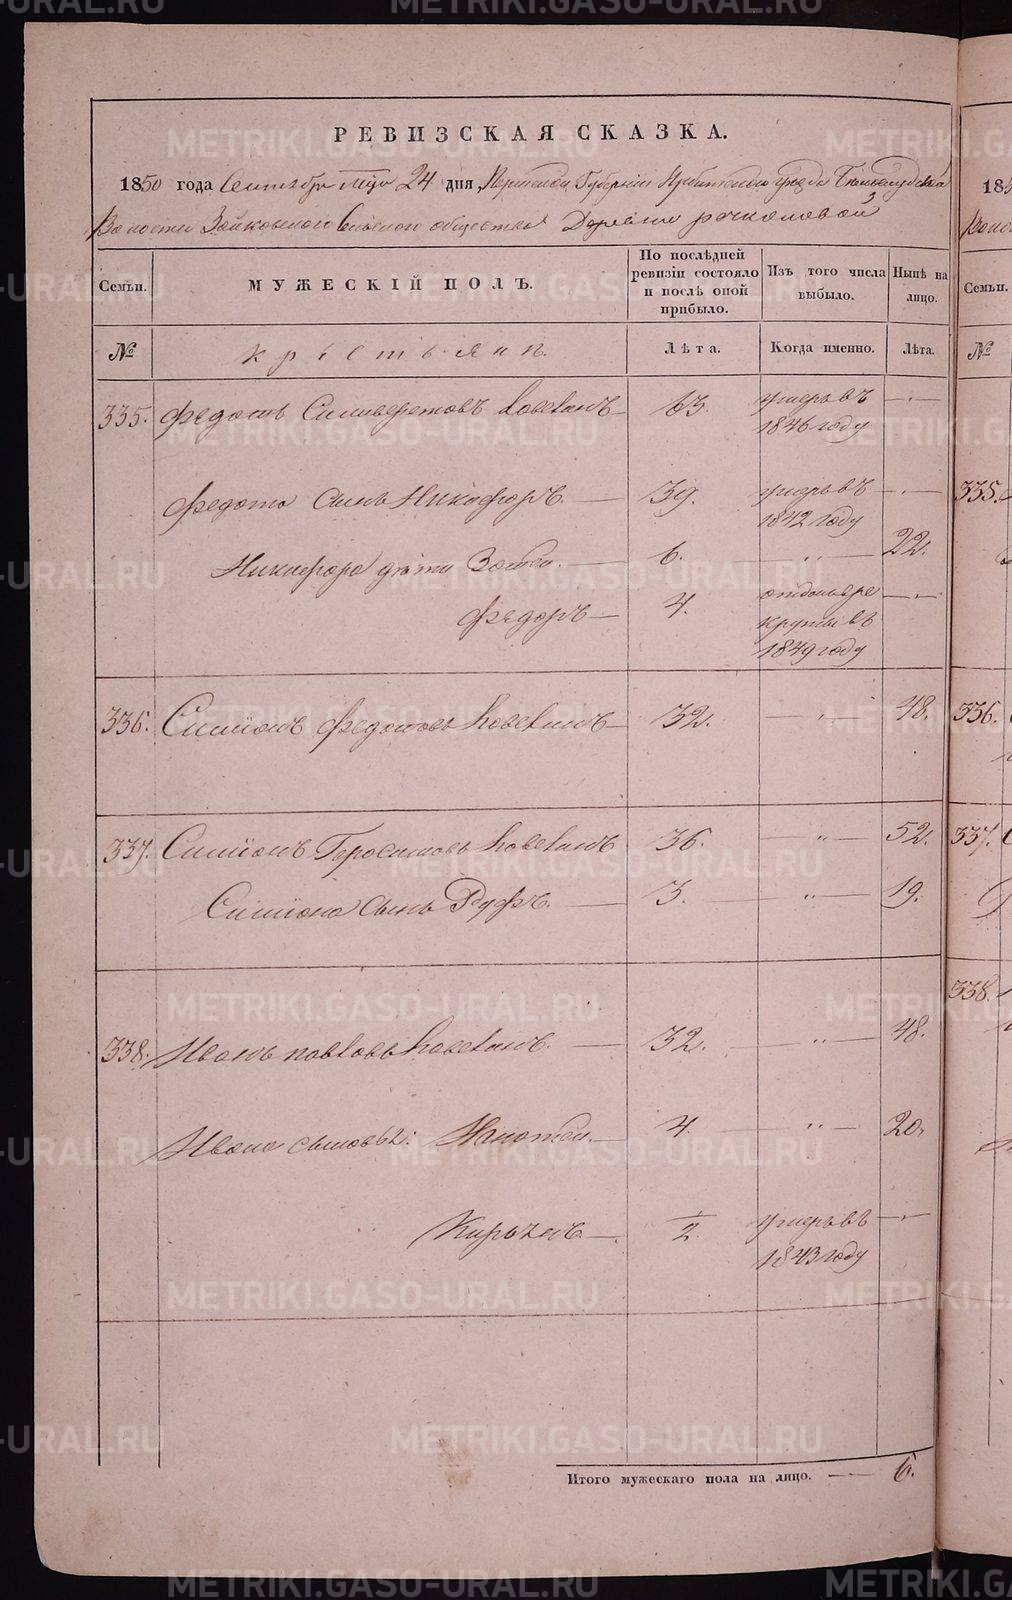 РЕВИЗСКАЯ СКАЗКА.
1850 года Сентября мца 24 дня, Пермской Губернии Ирбитскаго уезда
Волости Зайковского Сельского общества Деревни речкаловой
Семьи. МУЖЕСКІЙ ПОЛЪ. По послѣдней ревизіи состояло и послѣ оной прибыло. Изъ того числа выбыло. Нынѣ на лицо.
№ крестьянъ. Лѣта. Когда именно. Лѣта.
335. Федотъ Силиверстовъ 63. умеръ въ 1846 году
Федота сынъ Никифоръ 39. умеръ въ 1842 году
Никифора дѣти 6. 22.
Федоръ 4. отданъ въ рекруты въ 1849 году
336. Симіонъ Федотовъ 32. 48.
337. Симіонъ Геросимовъ 36. 52.
Симіона сынъ Руфъ. 3. 19.
338. Иванъ павловъ 32. 48.
Ивана сыновья: 4. 20.
1/2 умеръ въ 1843 году
Итого мужескаго пола на лицо. 6.
335.
336.
337.
338.
Семьи.
№
METRIKI.GASO-URAL.RU